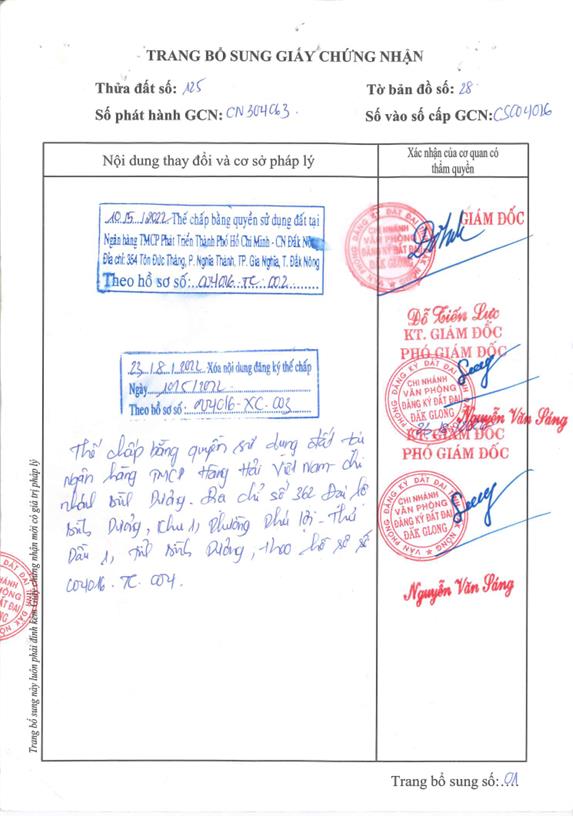 TRANG BỔ SUNG GIẤY CHỨNG NHẬN
Thửa đất số: 125 Tờ bản đồ số: 28
Số phát hành GCN: CN304063. Số vào số cấp GCN: CS004016
Nội dung thay đổi và cơ sở pháp lý
Xác nhận của cơ quan có
thẩm quyền
10/5/2022 Thế chấp bằng quyền sử dụng đất tại
Ngân hàng TMCP Phát Triển Thành Phố Hồ Chí Minh - CN Đắk Nông
Địa chỉ: 354 Tôn Đức Thắng, P. Nghĩa Thành, TP. Gia Nghĩa, T. Đắk Nông
Theo hồ sơ số: 004016.TC.002
GIÁM ĐỐC
CHI NHÁNH
VĂN PHÒNG
ĐĂNG KÝ ĐẤT ĐAI
ĐĂK GLONG
Đỗ Tiến Lực
23/8/2022 Xóa nội dung đăng ký thế chấp
Ngày 10/5/2022
Theo hồ sơ số: 004016-XC.003
KT. GIÁM ĐỐC
PHÓ GIÁM ĐỐC
CHI NHÁNH
VĂN PHÒNG
ĐĂNG KÝ ĐẤT ĐAI
ĐĂK GLONG
Nguyễn Văn Sáng
Thế chấp bằng quyền sử dụng đất tại
Ngân hàng TMCP Hàng Hải Việt Nam - chi
nhánh Bình Dương. Địa chỉ số 362 Đại lộ
Bình Dương, Khu 1, Phường Phú Lợi - Thủ
Dầu 1, tỉnh Bình Dương, theo hồ sơ số
004016.TC.004.
KT. GIÁM ĐỐC
PHÓ GIÁM ĐỐC
VĂN PHÒNG ĐĂNG KÝ ĐẤT ĐAI ĐẮK NÔNG
CHI NHÁNH
VĂN PHÒNG
ĐĂNG KÝ ĐẤT ĐAI
ĐĂK GLONG
Nguyễn Văn Sáng
Trang bổ sung này luôn phải đính kèm Giấy chứng nhận mới có giá trị pháp lý
Trang bổ sung số: 01